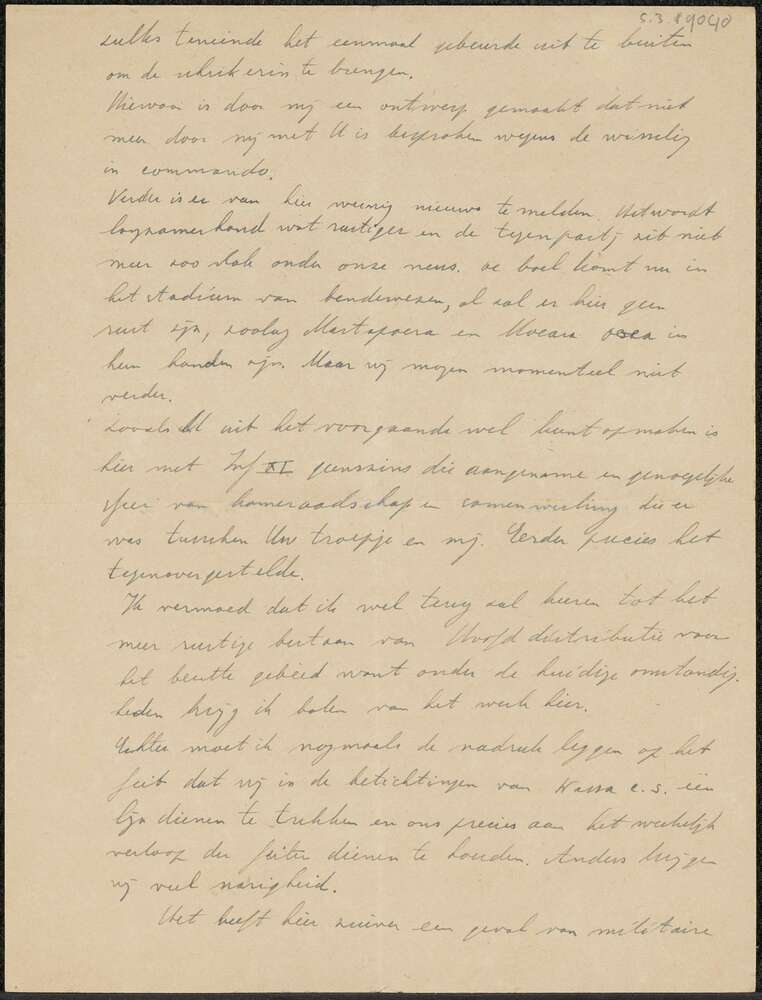 5.3. 19040
zulks teneinde het eenmaal gebeurde uit te buiten
om de schrik erin te brengen.
Hiervan is door mij een ontwerp gemaakt dat niet
meer door mij met U is besproken wegens de wisseling
in commando.
Verder is er van hier weinig nieuws te melden. Het wordt
langzamerhand wat rustiger en de tegenpartij zit niet
meer zoo vlak onder onze neus. De boel komt nu in
het stadium van bendewezen, al zal er hier geen
rust zijn, zoolang Martapoera en Moeara in
hun handen zijn. Maar wij mogen momenteel niet
verder.
Zooals U uit het voorgaande wel kunt opmaken is
hier met Inf XI geenszins die aangename en genoegelijke
sfeer van kameraadschap en samenwerking die er
was tusschen Uw troepje en mij. Eerder precies het
tegenovergestelde.
Ik vermoed dat ik wel terug zal keeren tot het
meer rustige bestaan van Hoofd distributie voor
het bezette gebied want onder de huidige omstandig-
heden krijg ik balen van het werk hier.
Echter moet ik nogmaals de nadruk leggen op het
feit dat wij in de betichtingen van Kassa c.s. één
lijn dienen te trekken en ons precies aan het werkelijk
verloop der feiten dienen te houden. Anders krijgen
wij veel narigheid.
Het heeft hier zuiver een geval van militaire